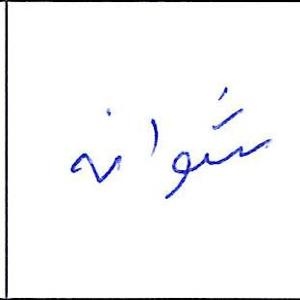 شوانه